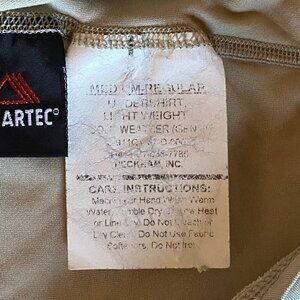 ARTEC®
MEDIUM-REGULAR
UNDERSHIRT,
LIGHT WEIGHT
COLD WEATHER (GEN III)
PECKHAM, INC.
CARE INSTRUCTIONS:
Machine or Hand Wash Warm
Water, Tumble Dry Low Heat
or Line Dry. Do Not Bleach or
Dry Clean. Do Not Use Fabric
Softeners. Do Not Iron.